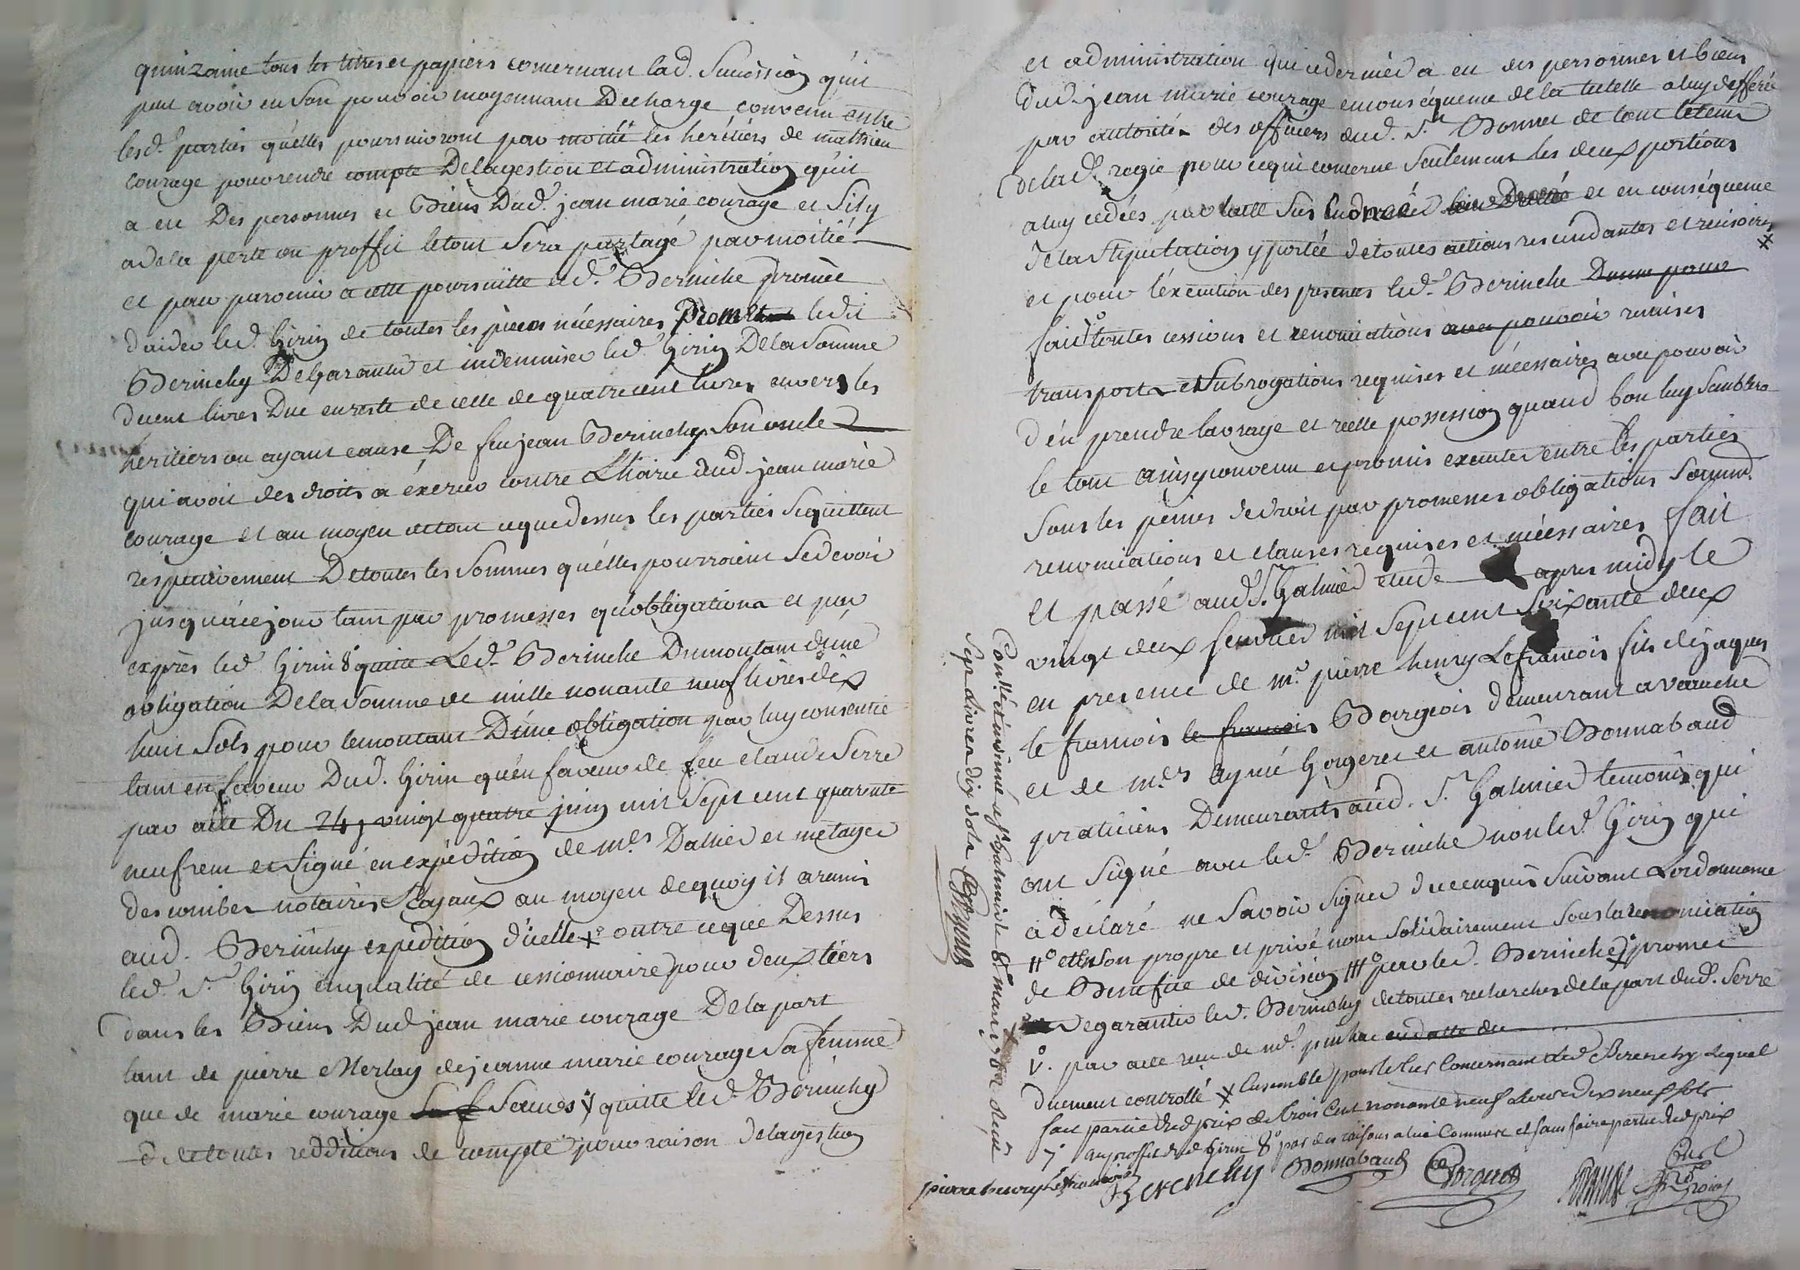 quinzaine tous les titres et papiers concernant lad. Succession qu'il
peut avoir en son pouvoir moyennant Decharge convenu entre
lesd. parties qu'elles poursuivront par moitié les heritiers de mathieu
courage pour rendre compte De la gestion et administration qu'il
a eu Des personnes et Biens Dud. jean marie courage et S'il y
a de la perte ou proffit le tout Sera partagé par moitié
et pour parvenir a cette poursuitte led. Berinche promet
d'aider led. Girin de toutes les pieces nécessaires promet ledit
Berinchy De Garantir et indemniser led. Girin De la Somme
ducent livres Due en reste de celle de quatre cent livres envers les
héritiers ou ayant cause De feu jean Berinchy Son oncle
qui avoit des droits a éxercer contre L'hoirie dud. jean marie
courage et au moyen de tout ce que dessus les parties Se quittent
respectivement De toutes les Sommes qu'elles pourroient Se devoir
jusqu'à ce jour tant par promesses qu'obligations et par
exprès led. Girin 8° quitte Led. Berinche Du montant d'une
obligation De la Somme de mille nonante neuf livres dix
huit Sols pour le montant D'une obligation par luy consentie
tant en faveur Dud. Girin qu'en faveur de feu claude Serre
par acte Du 24 vingt quatre juin mil Sept cent quarente
neuf reçu et Signé en expédition de mes. Dalier et metayer
descombes notaires Royaux au moyen de quoy il a remis
aud. Berinchy expedition d'icelle outre ce que Dessus
led. Sr. Girin en qualité de cessionnaire pour deux tiers
dans les Biens Dud. jean marie courage De la part
tant de pierre Merlay de jeanne marie courage Sa femme
que de marie courage Sa f Soeurs quitte led. Berinchy
de toutes redditions de compte pour raison de la géstion
et administration que ce dernier a eu des personnes et biens
dud. jean marie courage en conséquence de la tutelle a luy defferée
par autorité des officiers dud. St. Bonnet de tout le tems
de lad. regie pour ce qui concerne Seulement les deux portions
a luy cédées par et en conséquence
de la Stipulation y portée de toutes actions rescindantes et rescisoires
et pour l'éxecution des presentes led. Berinche Dune pour
fait toutes cessions et renonciations avec pouvoir remises
transports et Subrogations requises et nécessaires avec pouvoir
d'en prendre la vraye et réelle possession quand bon luy Semblera
le tout ainsy convenu et promis executer entre les parties
Sous les peines de droit par promesses obligations Soummd.
renonciations et clauses requises et nécessaires fait
et passé aud. St. Galmier etude apres midy le
vingt deux fevrier mil Sept cent Soixante deux
en presence de mr. pierre henry Lefrancois fils de jaques
le francois le francois Bourgeois demeurant a varenche
et de mes. aymé Gorgeret et antoine Bonnabaud
praticiens Demeurants aud. St. Galmier temoins qui
ont Signé avec led. Berinche non led. Girin qui
a déclaré ne Savoir Signer de ce enquis Suivant Lordonnance
11° et en Son propre et privé nom Solidairement Sous la renonciation
de Benefice de division 111° par led. Berinche promet
de garantir led. Berinchy de toutes recherches de la part dud. Serre
V°. par acte reçu de me. pinhac en datte du
duement controllé ensemble pour le Sus concernant led. Berenchy lequel
fait partie du prix de trois cent nonante neuf livres dix neuf Sols
7° au proffit dud. Girin 8° par des raisons a luy Connues et Sans faire partie dud. prix
pierre henry Lefrancois Berenchy Bonnabaud Gorgeret
Conllé et insinué a St. Galmier le 6e mars 1762 Reçu
Sept livres dix sols